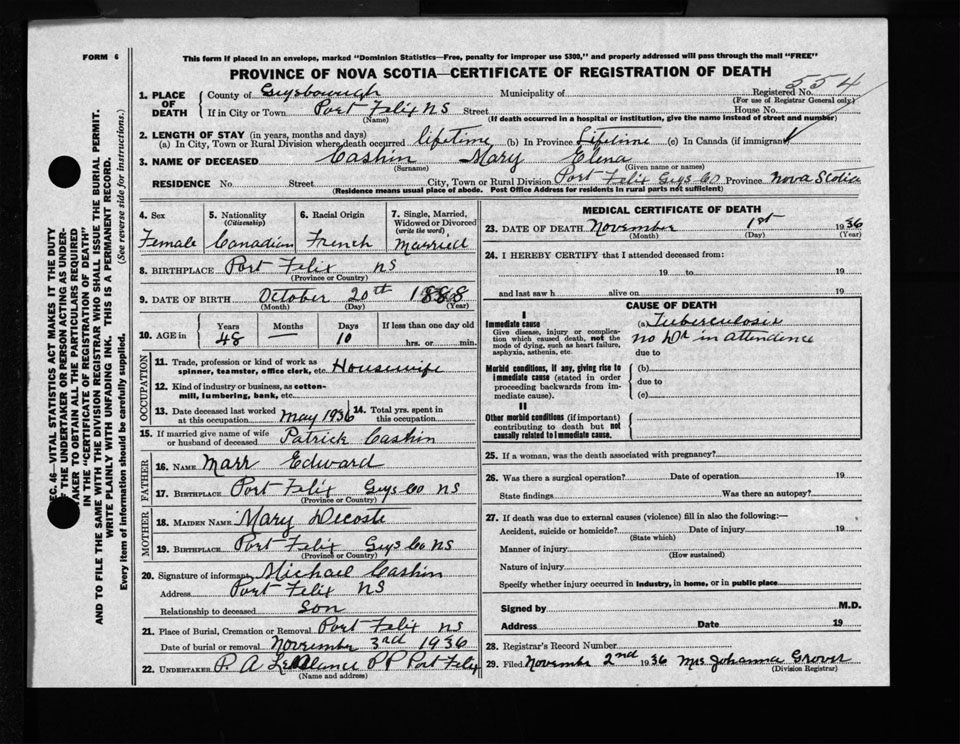 FORM 6
This form if placed in an envelope, marked "Dominion Statistics—Free, penalty for improper use $300," and properly addressed will pass through the mail "FREE"
PROVINCE OF NOVA SCOTIA—CERTIFICATE OF REGISTRATION OF DEATH
SEC. 46—VITAL STATISTICS ACT MAKES IT THE DUTY
OF THE UNDERTAKER OR PERSON ACTING AS UNDER-
TAKER TO OBTAIN ALL THE PARTICULARS REQUIRED
IN THE "CERTIFICATE OF REGISTRATION OF DEATH"
AND TO FILE THE SAME WITH THE DIVISION REGISTRAR WHO SHALL ISSUE THE BURIAL PERMIT.
WRITE PLAINLY WITH UNFADING INK. THIS IS A PERMANENT RECORD.
Every item of information should be carefully supplied. (See reverse side for instructions.)
1. PLACE OF DEATH County of Guysborough Municipality of Registered No. 554
(For use of Registrar General only)
If in City or Town Port Felix NS Street House No.
(Name) (If death occurred in a hospital or institution, give the name instead of street and number)
2. LENGTH OF STAY (in years, months and days)
(a) In City, Town or Rural Division where death occurred lifetime (b) In Province Lifetime (c) In Canada (if immigrant)
3. NAME OF DECEASED Cashin Mary Elena
(Surname) (Given name or names)
RESIDENCE No. Street City, Town or Rural Division Port Felix Guys Co Province Nova Scotia
(Residence means usual place of abode. Post Office Address for residents in rural parts not sufficient)
4. Sex Female
5. Nationality (Citizenship) Canadian
6. Racial Origin French
7. Single, Married, Widowed or Divorced (write the word) Married
8. BIRTHPLACE Port Felix NS
(Province or Country)
9. DATE OF BIRTH October 20th 1888
(Month) (Day) (Year)
10. AGE in Years 48 Months — Days 10 If less than one day old hrs. or min.
OCCUPATION
11. Trade, profession or kind of work as spinner, teamster, office clerk, etc. Housewife
12. Kind of industry or business, as cotton-mill, lumbering, bank, etc.
13. Date deceased last worked at this occupation May 1936 14. Total yrs. spent in this occupation
15. If married give name of wife or husband of deceased Patrick Cashin
FATHER
16. NAME Marr Edward
17. BIRTHPLACE Port Felix Guys Co NS
(Province or Country)
MOTHER
18. MAIDEN NAME Mary Decoste
19. BIRTHPLACE Port Felix Guys Co NS
(Province or Country)
20. Signature of informant Michael Cashin
Address Port Felix NS
Relationship to deceased Son
21. Place of Burial, Cremation or Removal Port Felix NS
Date of burial or removal November 3rd 1936
22. UNDERTAKER P. A. PP Port Felix
(Name and address)
MEDICAL CERTIFICATE OF DEATH
23. DATE OF DEATH November 1st 1936
(Month) (Day) (Year)
24. I HEREBY CERTIFY that I attended deceased from:
19 to 19
and last saw h alive on 19
CAUSE OF DEATH
I
Immediate cause (a) Tuberculosis
Give disease, injury or complication which caused death, not the mode of dying, such as heart failure, asphyxia, asthenia, etc.
no Dr in attendence
due to
Morbid conditions, if any, giving rise to immediate cause (stated in order proceeding backwards from immediate cause).
(b)
due to
(c)
II
Other morbid conditions (if important) contributing to death but not causally related to immediate cause.
25. If a woman, was the death associated with pregnancy?
26. Was there a surgical operation? Date of operation 19
State findings Was there an autopsy?
27. If death was due to external causes (violence) fill in also the following:—
Accident, suicide or homicide? Date of injury 19
(State which)
Manner of injury
(How sustained)
Nature of injury
Specify whether injury occurred in industry, in home, or in public place
Signed by M.D.
Address Date 19
28. Registrar's Record Number
29. Filed November 2nd 1936 Mrs Johanna Grover
(Division Registrar)